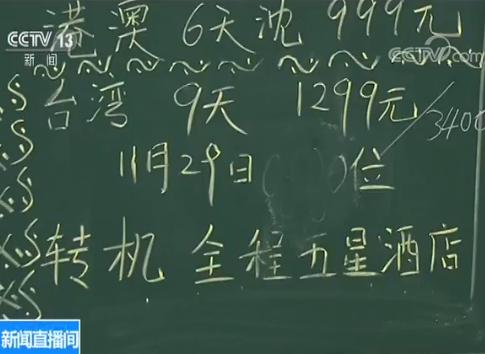 CCTV 13
新闻
CCTV.com
港澳 6天沈 999元
台湾 9天 1299元/3400
11月29日( )位
转机 全程五星酒店
新闻直播间